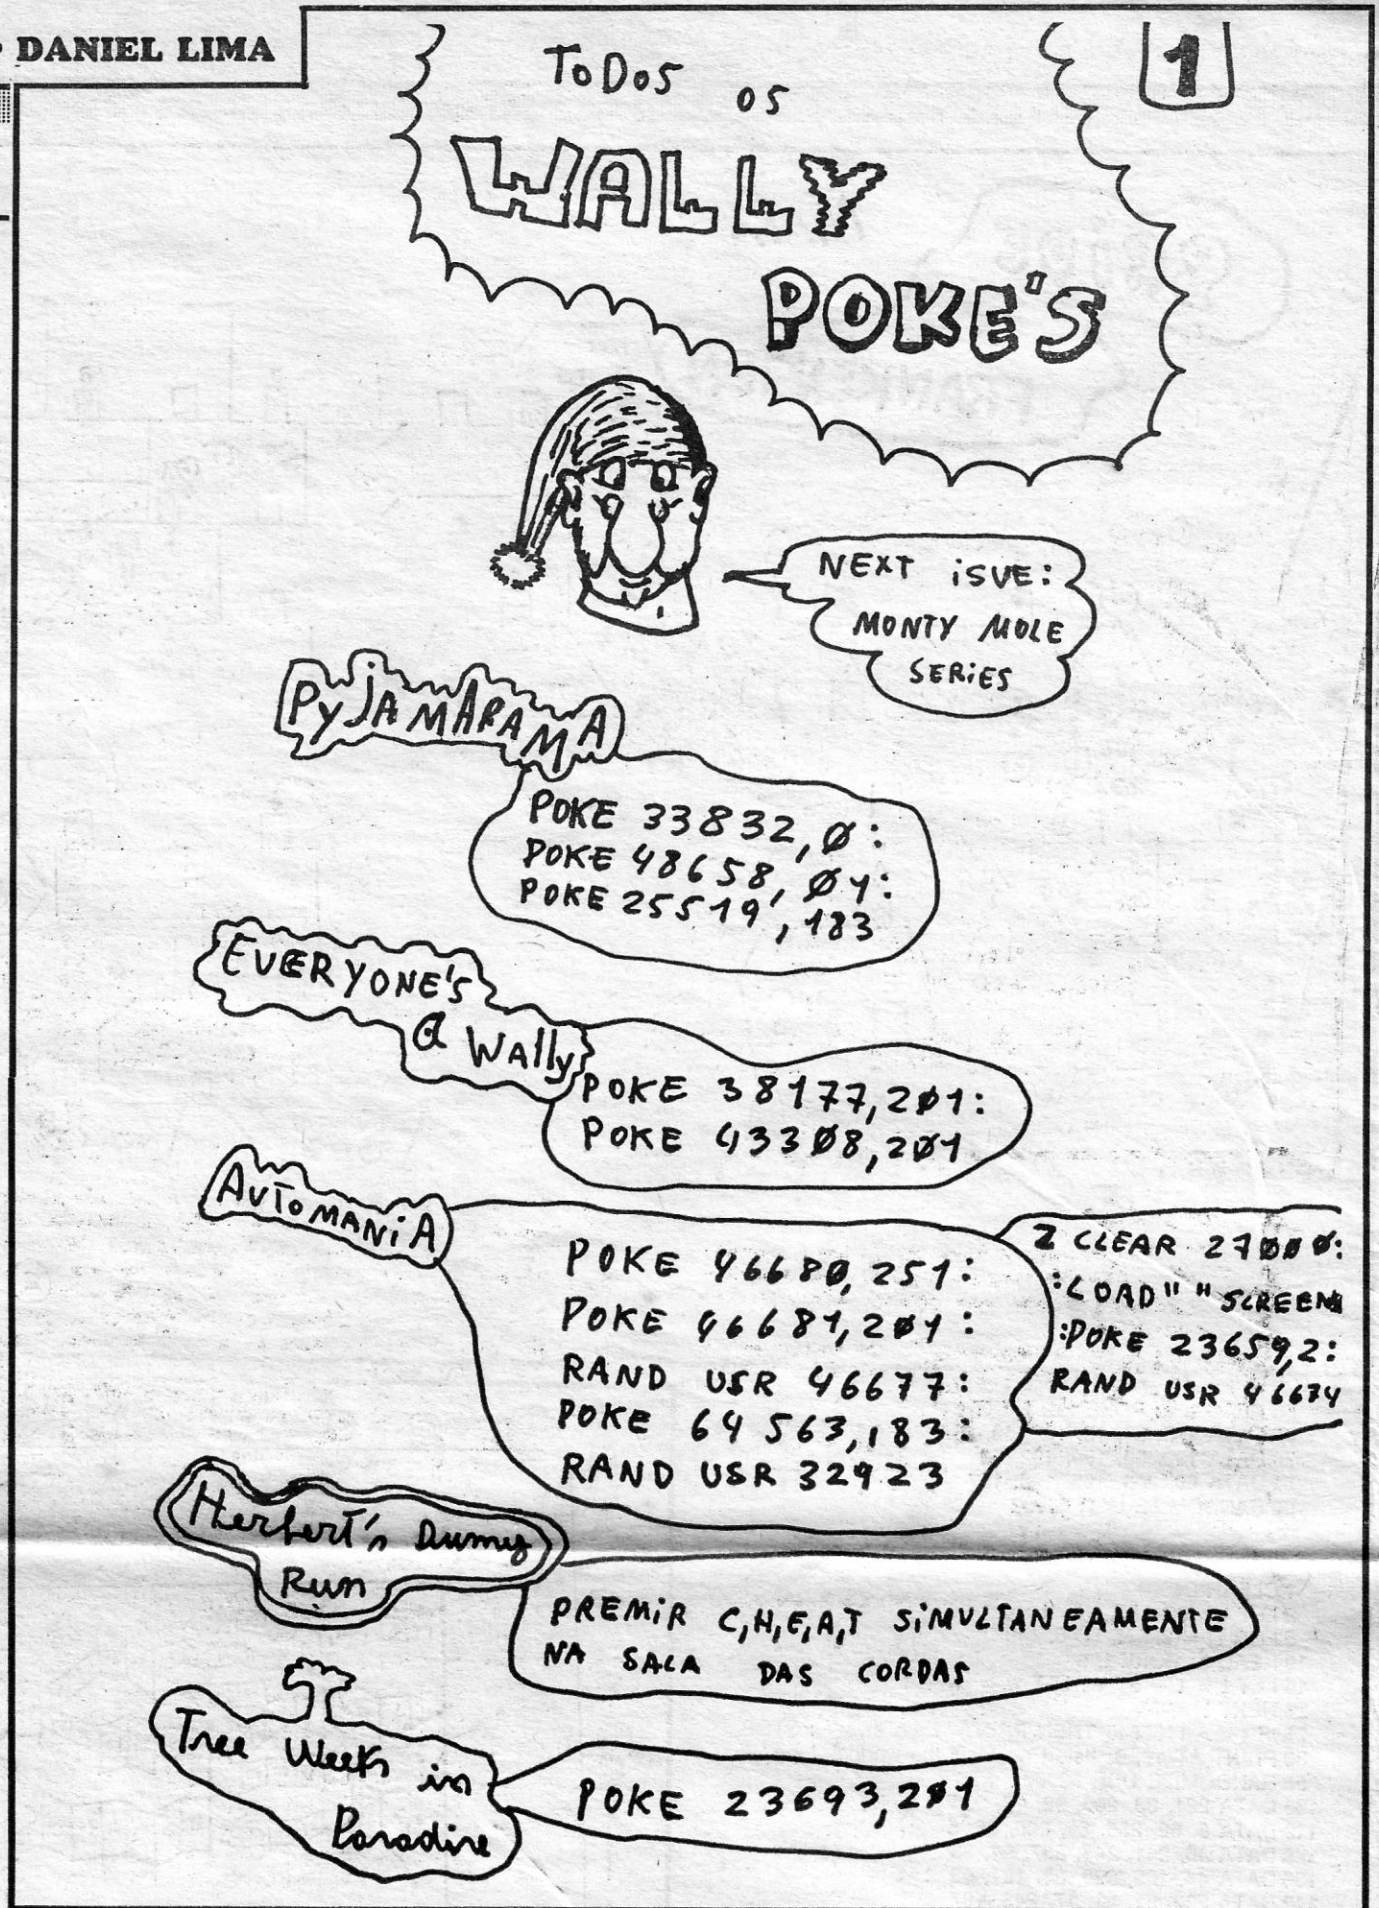 DANIEL LIMA
1
TODOS OS
WALLY
POKE'S
NEXT iSUE:
MONTY MOLE
SERiES
PYJAMARAMA
POKE 33832,0:
POKE 48658,01:
POKE 25519,183
EVERYONE'S
a Wally
POKE 38177,201:
POKE 43308,201
AUTOMANiA
POKE 46680,251:
POKE 46681,201:
RAND USR 46677:
POKE 64563,183:
RAND USR 32923
2 CLEAR 27000:
:LOAD" " SCREEN$
:POKE 23659,2:
RAND USR 46674
Herbert's Dumy
Run
PREMiR C,H,E,A,T SiMULTANEAMENTE
NA SALA DAS CORDAS
Tree Weeks in
Paradise
POKE 23693,201